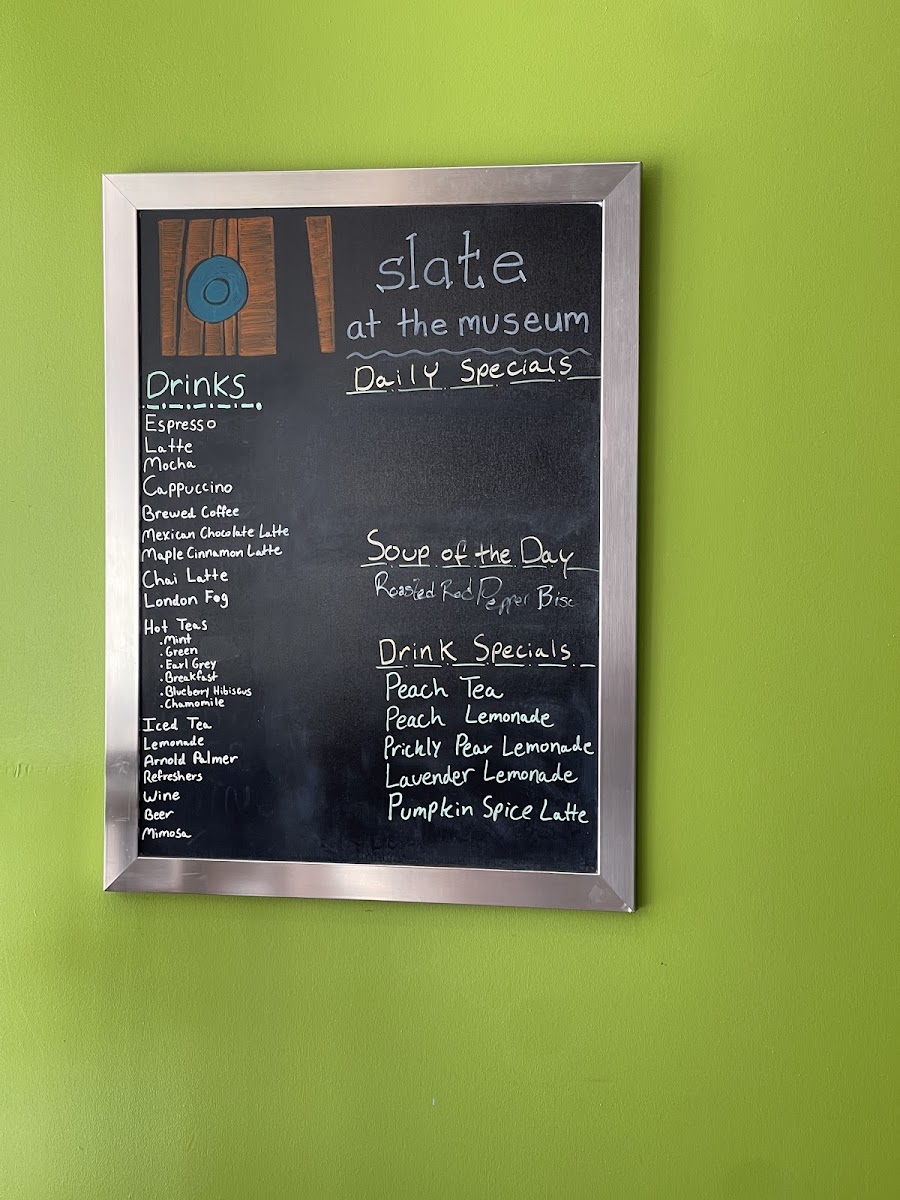 slate
at the museum
Drinks
Espresso
Latte
Mocha
Cappuccino
Brewed Coffee
Mexican Chocolate Latte
Maple Cinnamon Latte
Chai Latte
London Fog
Hot Teas
.Mint
.Green
.Earl Grey
.Breakfast
.Blueberry Hibiscus
.Chamomile
Iced Tea
Lemonade
Arnold Palmer
Refreshers
Wine
Beer
Mimosa
Daily Specials
Soup of the Day
Roasted Red Pepper Bisc
Drink Specials
Peach Tea
Peach Lemonade
Prickly Pear Lemonade
Lavender Lemonade
Pumpkin Spice Latte